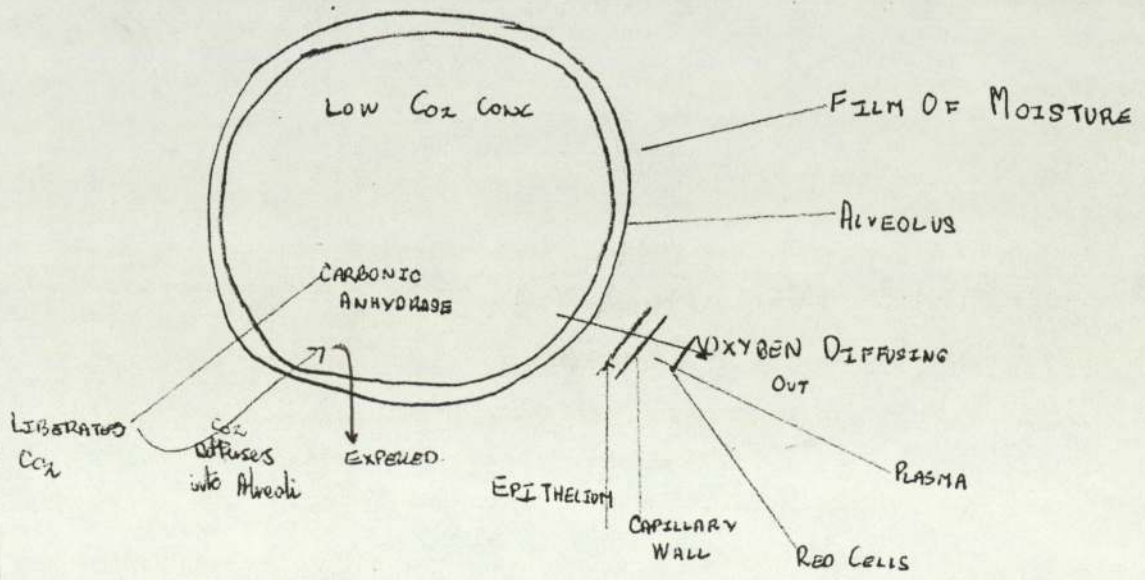 LOW CO2 CONC
FILM OF MOISTURE
ALVEOLUS
CARBONIC
ANHYDRASE
OXYGEN DIFFUSING
OUT
LIBERATES
CO2
CO2
Diffuses
into Alveoli
EXPELLED.
EPITHELIUM
CAPILLARY
WALL
PLASMA
RED CELLS